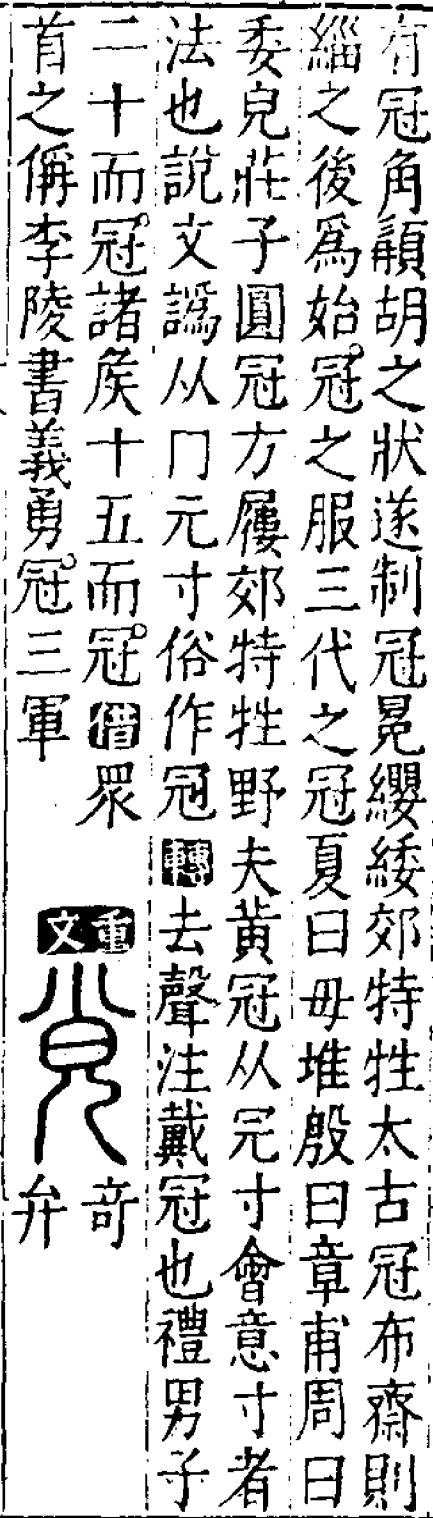 有冠角頿胡之狀遂制冠冕纓緌郊特牲太古冠布齋則
緇之後爲始冠之服三代之冠夏曰毋堆殷曰章甫周曰
委皃莊子圓冠方屨郊特牲野夫黃冠从冗寸會意寸者
法也說文譌从冂元寸俗作冠轉去聲注戴冠也禮男子
二十而冠諸矦十五而冠借眾
首之偁李陵書義勇冠三軍
重文
奇
弁